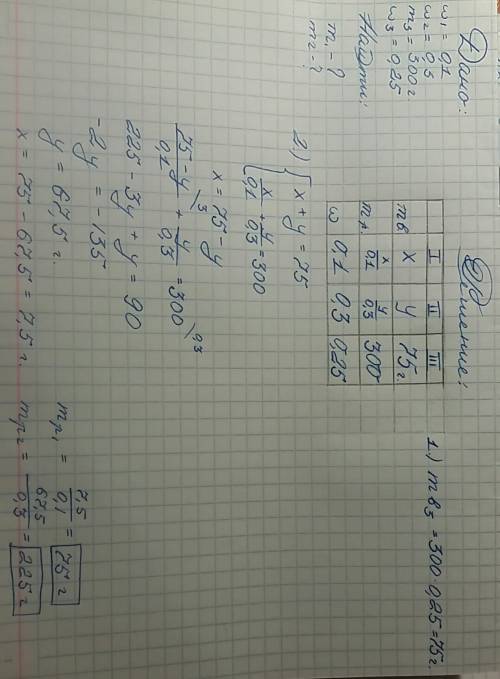 Дано:
ω₁ = 0,1
ω₂ = 0,3
m₃ = 300 г.
ω₃ = 0,25
Найти:
m₁ - ?
m₂ - ?
Решение:
1.) mв₃ = 300 · 0,25 = 75 г.
I II III
mв x y 75 г.
mр x/0,1 y/0,3 300
ω 0,1 0,3 0,25
2.) { x + y = 75
x/0,1 + y/0,3 = 300
x = 75 - y
75 - y/0,1 \3 + y/0,3 = 300 \0,3
225 - 3y + y = 90
-2y = -135
y = 67,5 г.
x = 75 - 67,5 = 7,5 г.
mр₁ = 7,5/0,1 = 75 г
mр₂ = 67,5/0,3 = 225 г